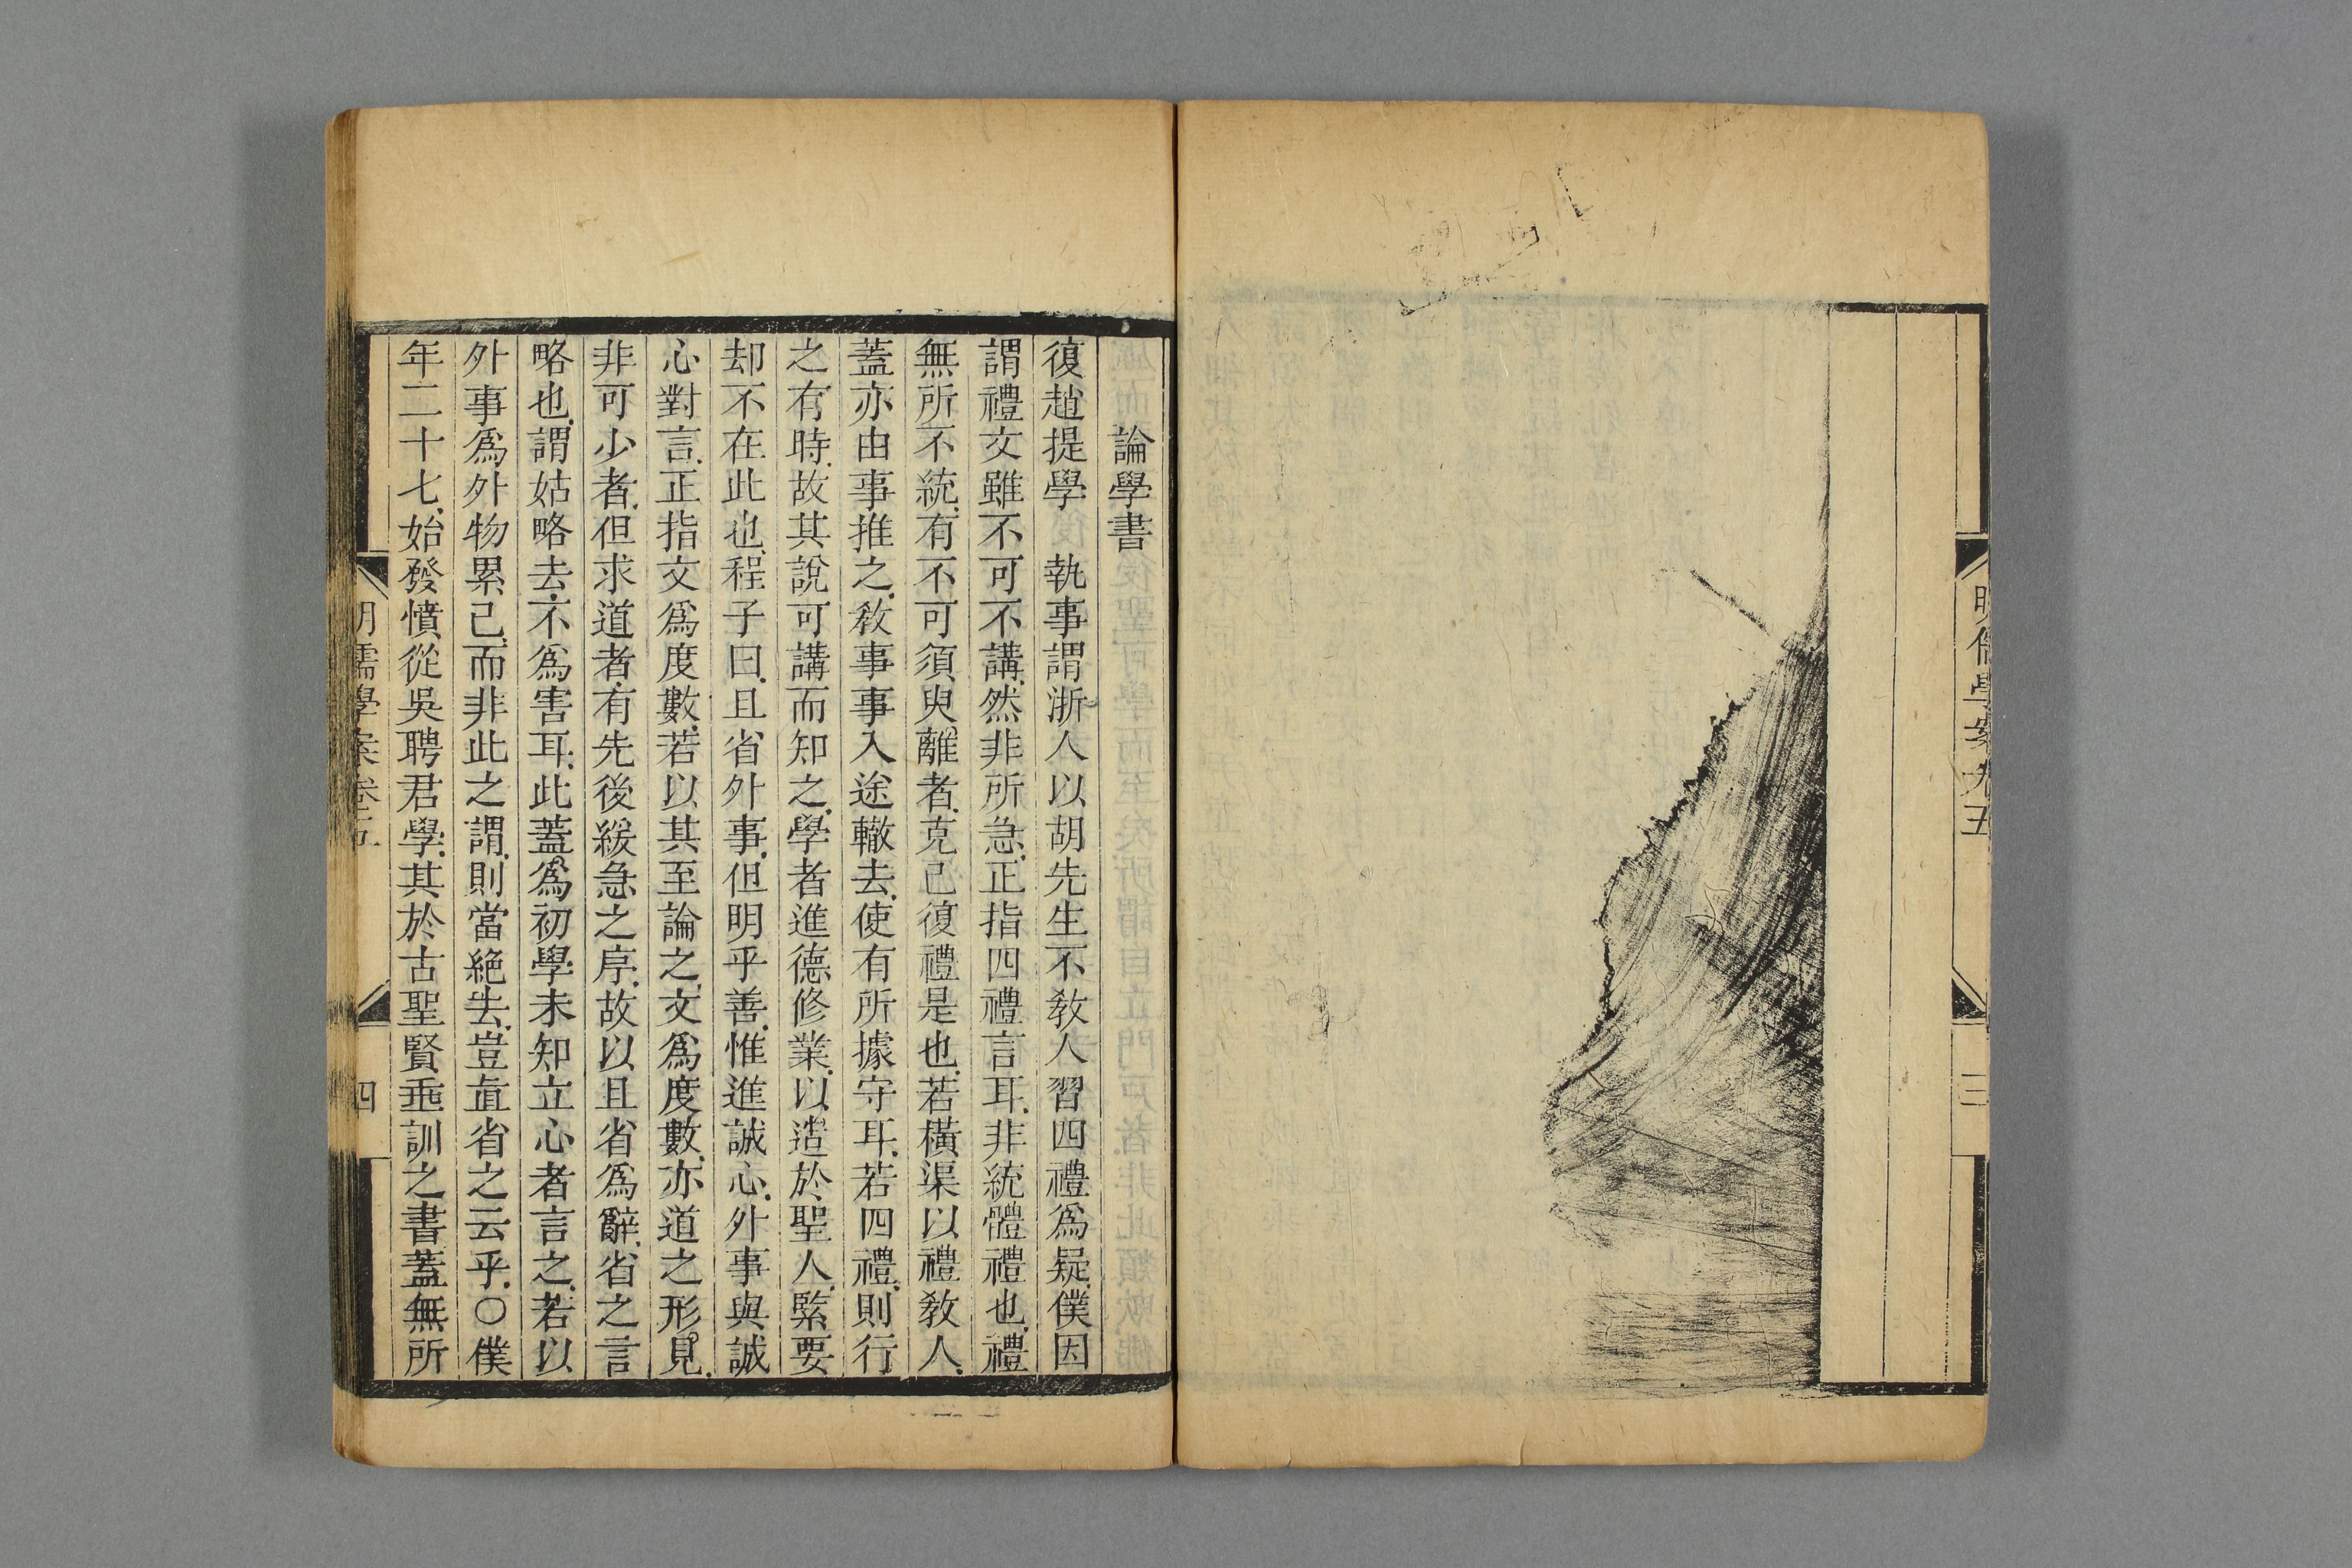 明儒學案卷五
三
論學書
復趙提學　執事謂浙人以胡先生不敎人習四禮爲疑僕因
謂禮文雖不可不講然非所急正指四禮言耳非統體禮也禮
無所不統有不可須臾離者克己復禮是也若橫渠以禮敎人
蓋亦由事推之敎事事入途轍去使有所據守耳若四禮則行
之有時故其說可講而知之學者進德修業以造於聖人緊要
却不在此也程子曰且省外事但明乎善惟進誠心外事與誠
心對言正指文爲度數若以其至論之文爲度數亦道之形見
非可少者但求道者有先後緩急之序故以且省爲辭省之言
略也謂姑略去不爲害耳此蓋爲初學未知立心者言之若以
外事爲外物累己而非此之謂則當絶去豈直省之云乎○僕
年二十七始發憤從吳聘君學其於古聖賢垂訓之書蓋無所
明儒學案卷五
四